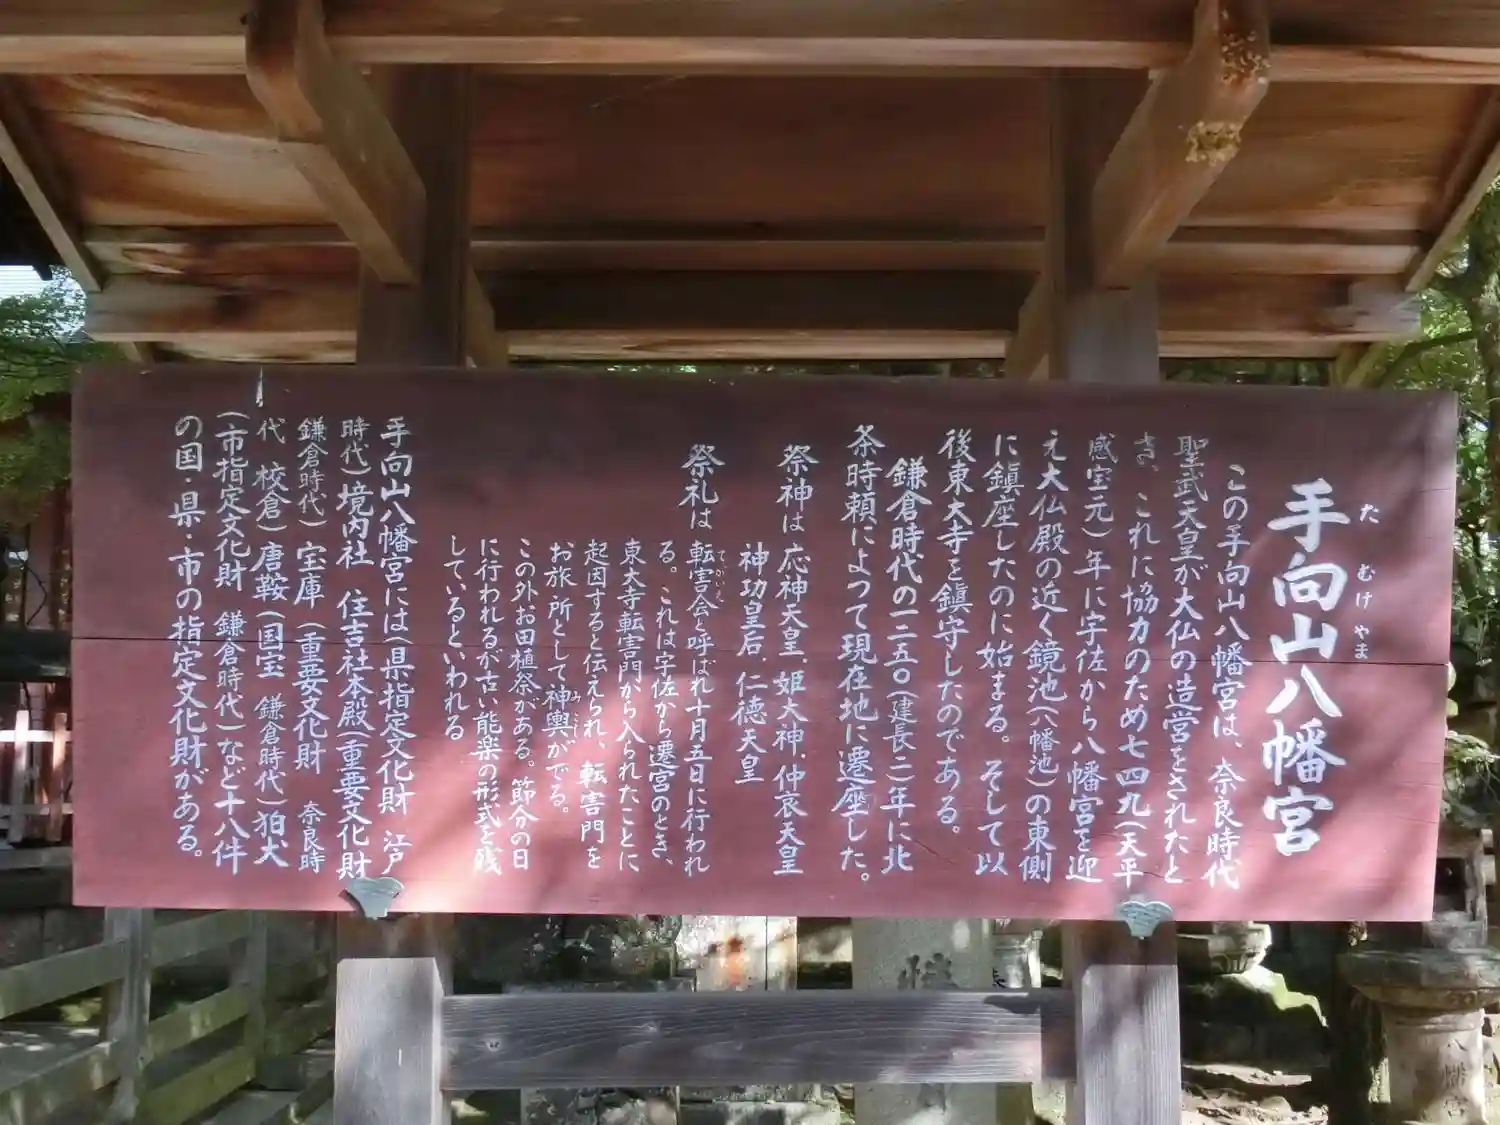 手向山八幡宮
た むけ やま
この手向山八幡宮は、奈良時代
聖武天皇が大仏の造営をされたと
き、これに協力のため七四九(天平
感宝元)年に宇佐から八幡宮を迎
え大仏殿の近く鏡池(八幡池)の東側
に鎮座したのに始まる。そして以
後東大寺を鎮守したのである。
鎌倉時代の一二五〇(建長二)年に北
条時頼によつて現在地に遷座した。
祭神は 応神天皇、姫大神、仲哀天皇
神功皇后、仁徳天皇
祭礼は 転害会と呼ばれ十月五日に行われ
てがいえ
る。これは宇佐から遷宮のとき、
東大寺転害門から入られたことに
起因すると伝えられ、転害門を
お旅所として神輿がでる。
みこし
この外お田植祭がある。節分の日
に行われるが古い能楽の形式を残
しているといわれる
手向山八幡宮には(県指定文化財 江戸
時代)境内社 住吉社本殿(重要文化財
鎌倉時代)宝庫(重要文化財 奈良時
代 校倉)唐鞍(国宝 鎌倉時代)狛犬
(市指定文化財 鎌倉時代)など十八件
の国・県・市の指定文化財がある。